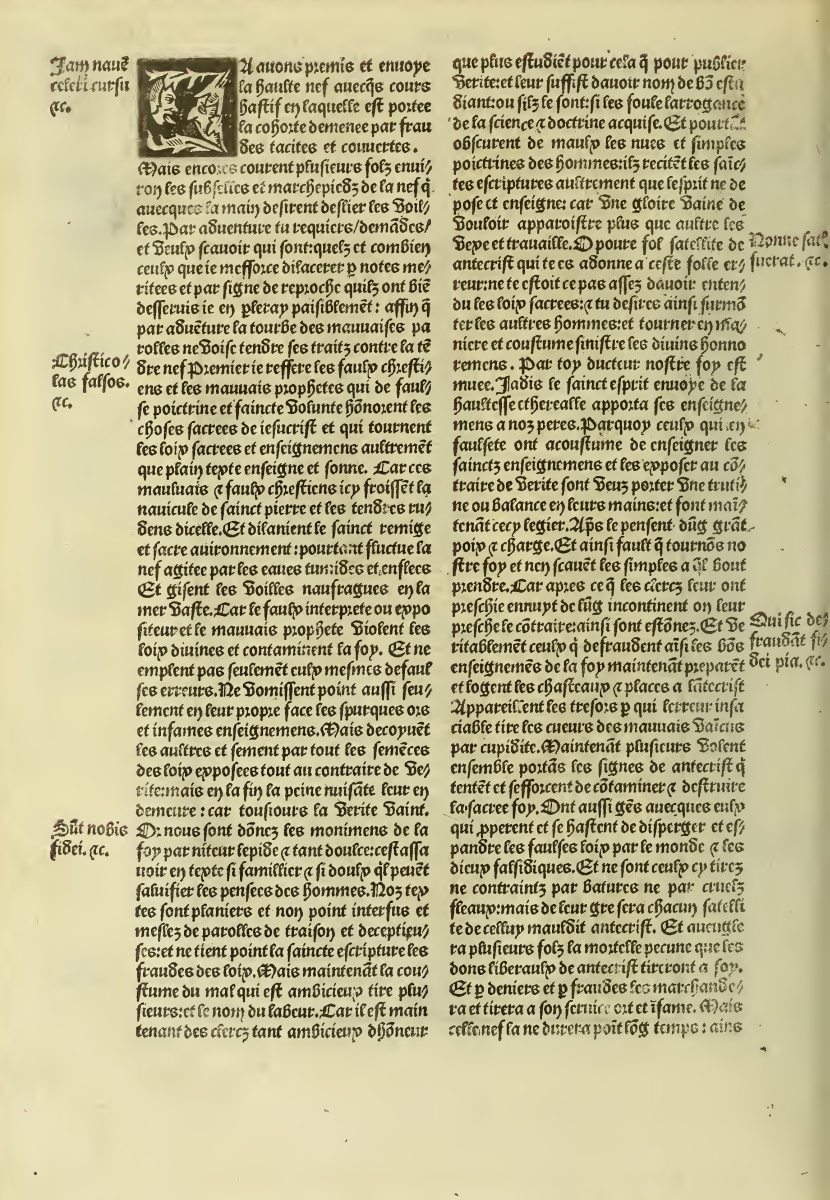 Jam nauē
celeri cursu
⁊c.
JA auons premis et enuoye
la haulte nef auecq̃s cours
hastif en laquelle est portee
la cohorte demenee par frau
des tacites et couuertes.
Mais encores courent plusieurs folz enui/
ron les subselles et marchepiedz de la nef q̃
auecques la main desirent deslier les voil/
les. Par aduenture tu requiers/demādes/
et veulx scauoir qui sont: quelz et combien
ceulx que ie mefforce dilacerer p notes me/
ritees et par signe de reproche quilz ont biē
desseruis ie en pleray paisiblemēt: affin q̃
par aduēture la tourbe des mauuaises pa
rolles ne voise tendre ses traitz contre la tē
dre nef Premier ie reffere les faulx chresti/
ens et les mauuais prophetes qui de faul/
se poictrine et faincte volunte hōnorent les
choses sacrees de iesucrist et qui tournent
les loix sacrees et enseignemens aultremēt
que plain texte enseigne et sonne. Car ces
mauluais ⁊ faulx chrestiens icy froissēt la
nauicule de sainct pierre et les tendres ru/
dens dicelle. Et dilanient le sainct remige
et sacre auironnement: pourtant fluctue la
nef agitee par les eaues tumides et enflees
Et gisent les voilles naufragues en la
mer vaste. Car le faulx interprete ou expo
siteur et le mauuais prophete violent les
loix diuines et contaminent la foy. Et ne
emplent pas seulemēt culx mesmes de faul
ses erreurs. Ne vomissent point aussi seu/
lement en leur propre face les spurques ors
et infames enseignemens. Mais decoyuēt
les aultres et sement par tout les semēces
des loix exposees tout au contraire de ve/
rite: mais en la fin la peine nuisāte leur en
demeure: car tousiours la verite vaint.
Christico/
las falsos.
⁊c.
Sūt nobis
fidei. ⁊c.
Or nous sont dōnez les monimens de la
foy par niteur lepide ⁊ tant doulce: cest assa
uoir en texte si famillier ⁊ si doulx q̄l peuēt
saluifier les pensees des hommes. Noz tex
tes sont planiers et non point interfus et
meslez de parolles de traison et deceptieu/
ses: et ne tient point la saincte escripture les
fraudes des loix. Mais maintenāt la cou/
stume du mal qui est ambicieux tire plu/
sieurs: et le nom du labeur. Car il est main
tenant des clercz tant ambicieux dhōneur
que plus estudiēt pour cela q̃ pour publier
verite: et leur suffist dauoir nom de bō estu
diant: ou silz le font: si les foule larrogance
de la science ⁊ doctrine acquise. Et pourtāt
obscurent de maulx les nues et simples
poictrines des hommes: ilz recitēt les saīc/
tes escriptures aultrement que lesprit ne de
pose et enseigne: car vne gloire vaine de
vouloir apparoistre plus que aultre les
vexe et trauaille. O poure fol satellite de
antecrist qui te es adonne a ceste folle er/
reur: ne te estoit ce pas assez dauoir enten/
du les loix sacrees: ⁊ tu desires ainsi surmō
ter les aultres hommes: et tourner en ma/
niere et coustume sinistre les diuins honno
remens. Par toy ducteur nostre foy est
muee. Jadis le sainct esprit enuoye de la
haultesse ethereasse apporta ses enseigne/
mens a noz peres. Parquoy ceulx qui en
faulsete ont acoustume de enseigner les
sainctz enseignemens et les exposer au cō/
traire de verite sont veuz porter vne truti/
ne ou balance en leurs mains: et font mai/
tenāt cecy legier. Ap̃s le pensent dūg grāt
poix ⁊ charge. Et ainsi fault q̃ tournōs no
stre foy et nen scauēt les simples a q̄l bout
prendre. Car apres ce q̃ les clercz leur ont
preschie ennuyt de lūg incontinent on leur
presche le cōtraire: ainsi sont estōnez. Et ve
ritablemēt ceulx q̃ defraudent aīsi les bōs
enseignemēs de la foy maintenāt preparēt
et logent les chasteaux ⁊ places a lātecrist
Appareillent les tresors p qui lerreur insa
ciable tire les cueurs des mauuais vaicus
par cupidite. Maintenāt plusieurs volent
ensemble portās les signes de antecrist q̃
tentēt et sefforcent de cōtaminer ⁊ destruire
la sacree foy. Ont aussi gēs auecques eulx
qui properent et se hastent de disperger et es/
pandre les faulses loix par le monde ⁊ les
dieux falsidiques. Et ne sont ceulx cy tirez
ne contraintz par batures ne par cruelz
fleaux: mais de leur gre sera chacun satelli
te de cellux mauldit antecrist. Et aueugle
ra plusieurs folz la mortelle pecune que les
dons liberaulx de antecrist tireront a soy.
Et p deniers et p fraudes les marchande/
ra et tirera a son seruice ort et īfame. Mais
celle nef la ne durera poīt lōg temps: ains
Nonne sat/
fuerat. ⁊c.
Qui sic de/
fraudāt fi/
dei pia. ⁊c.